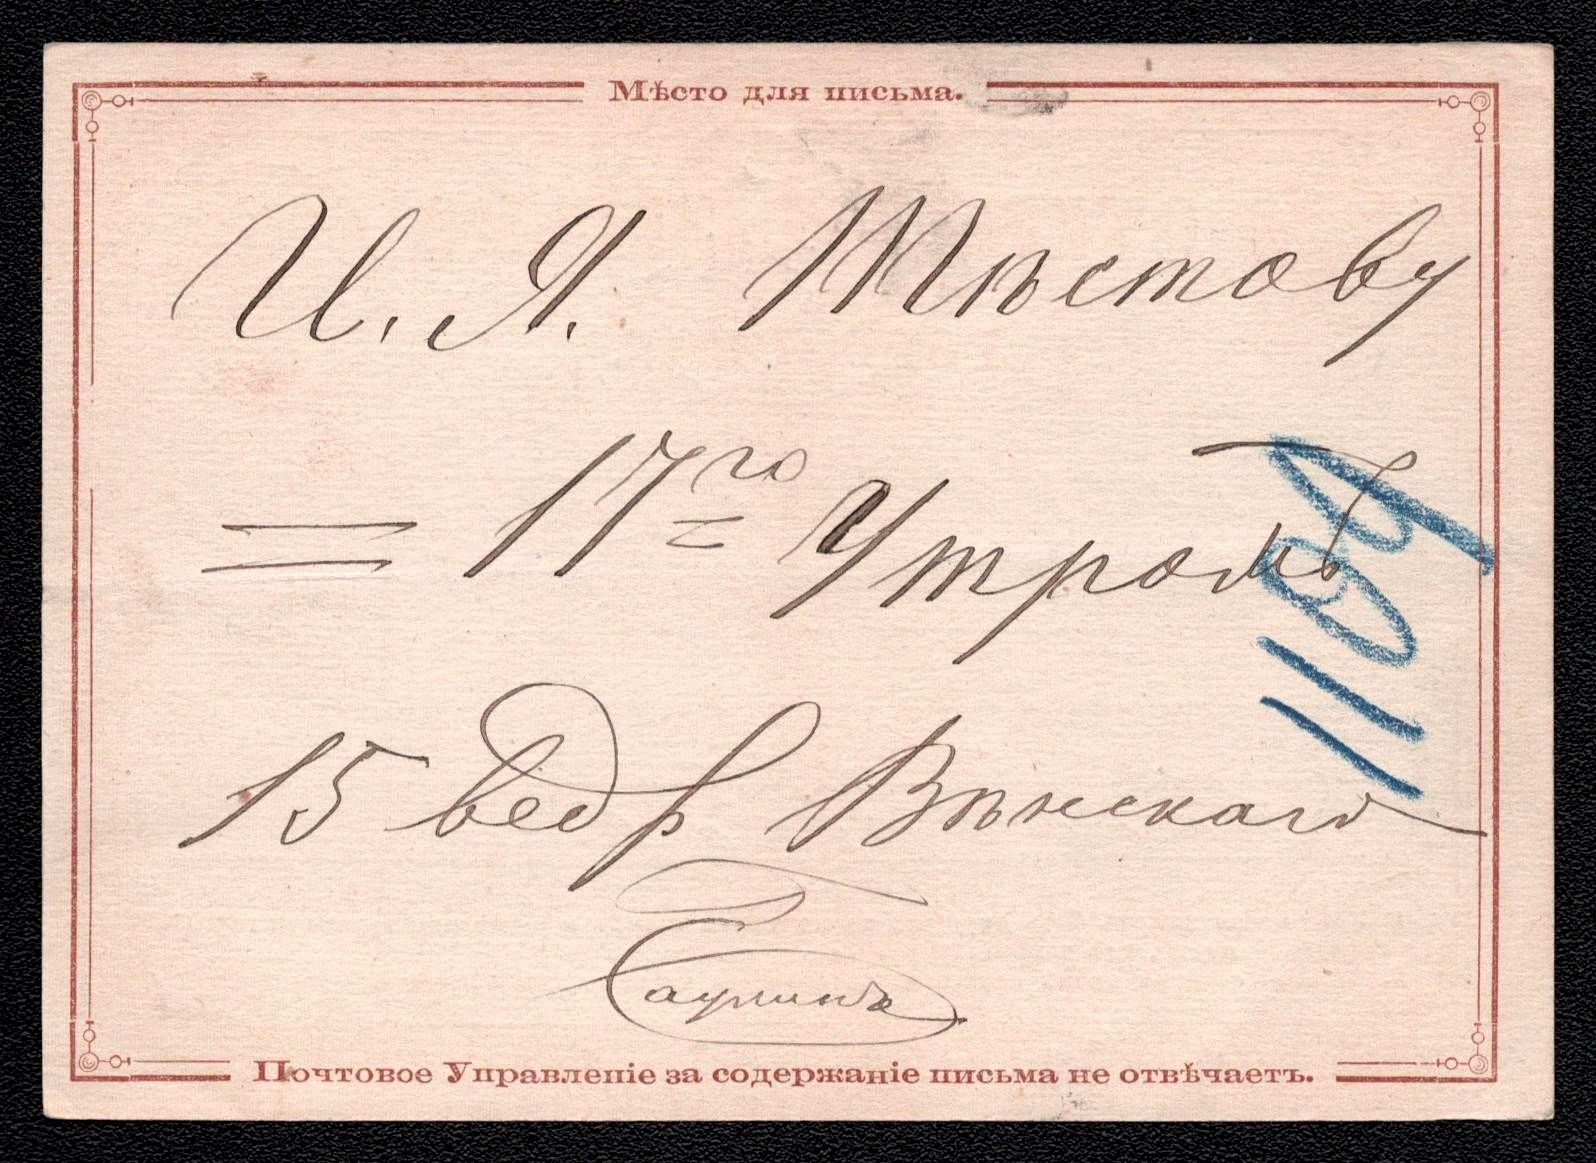 Мѣсто для письма.
И. Я. Тѣстову
= 17го Утромъ
1104
15 ведръ Вѣнскаго
Почтовое Управленіе за содержаніе письма не отвѣчаетъ.